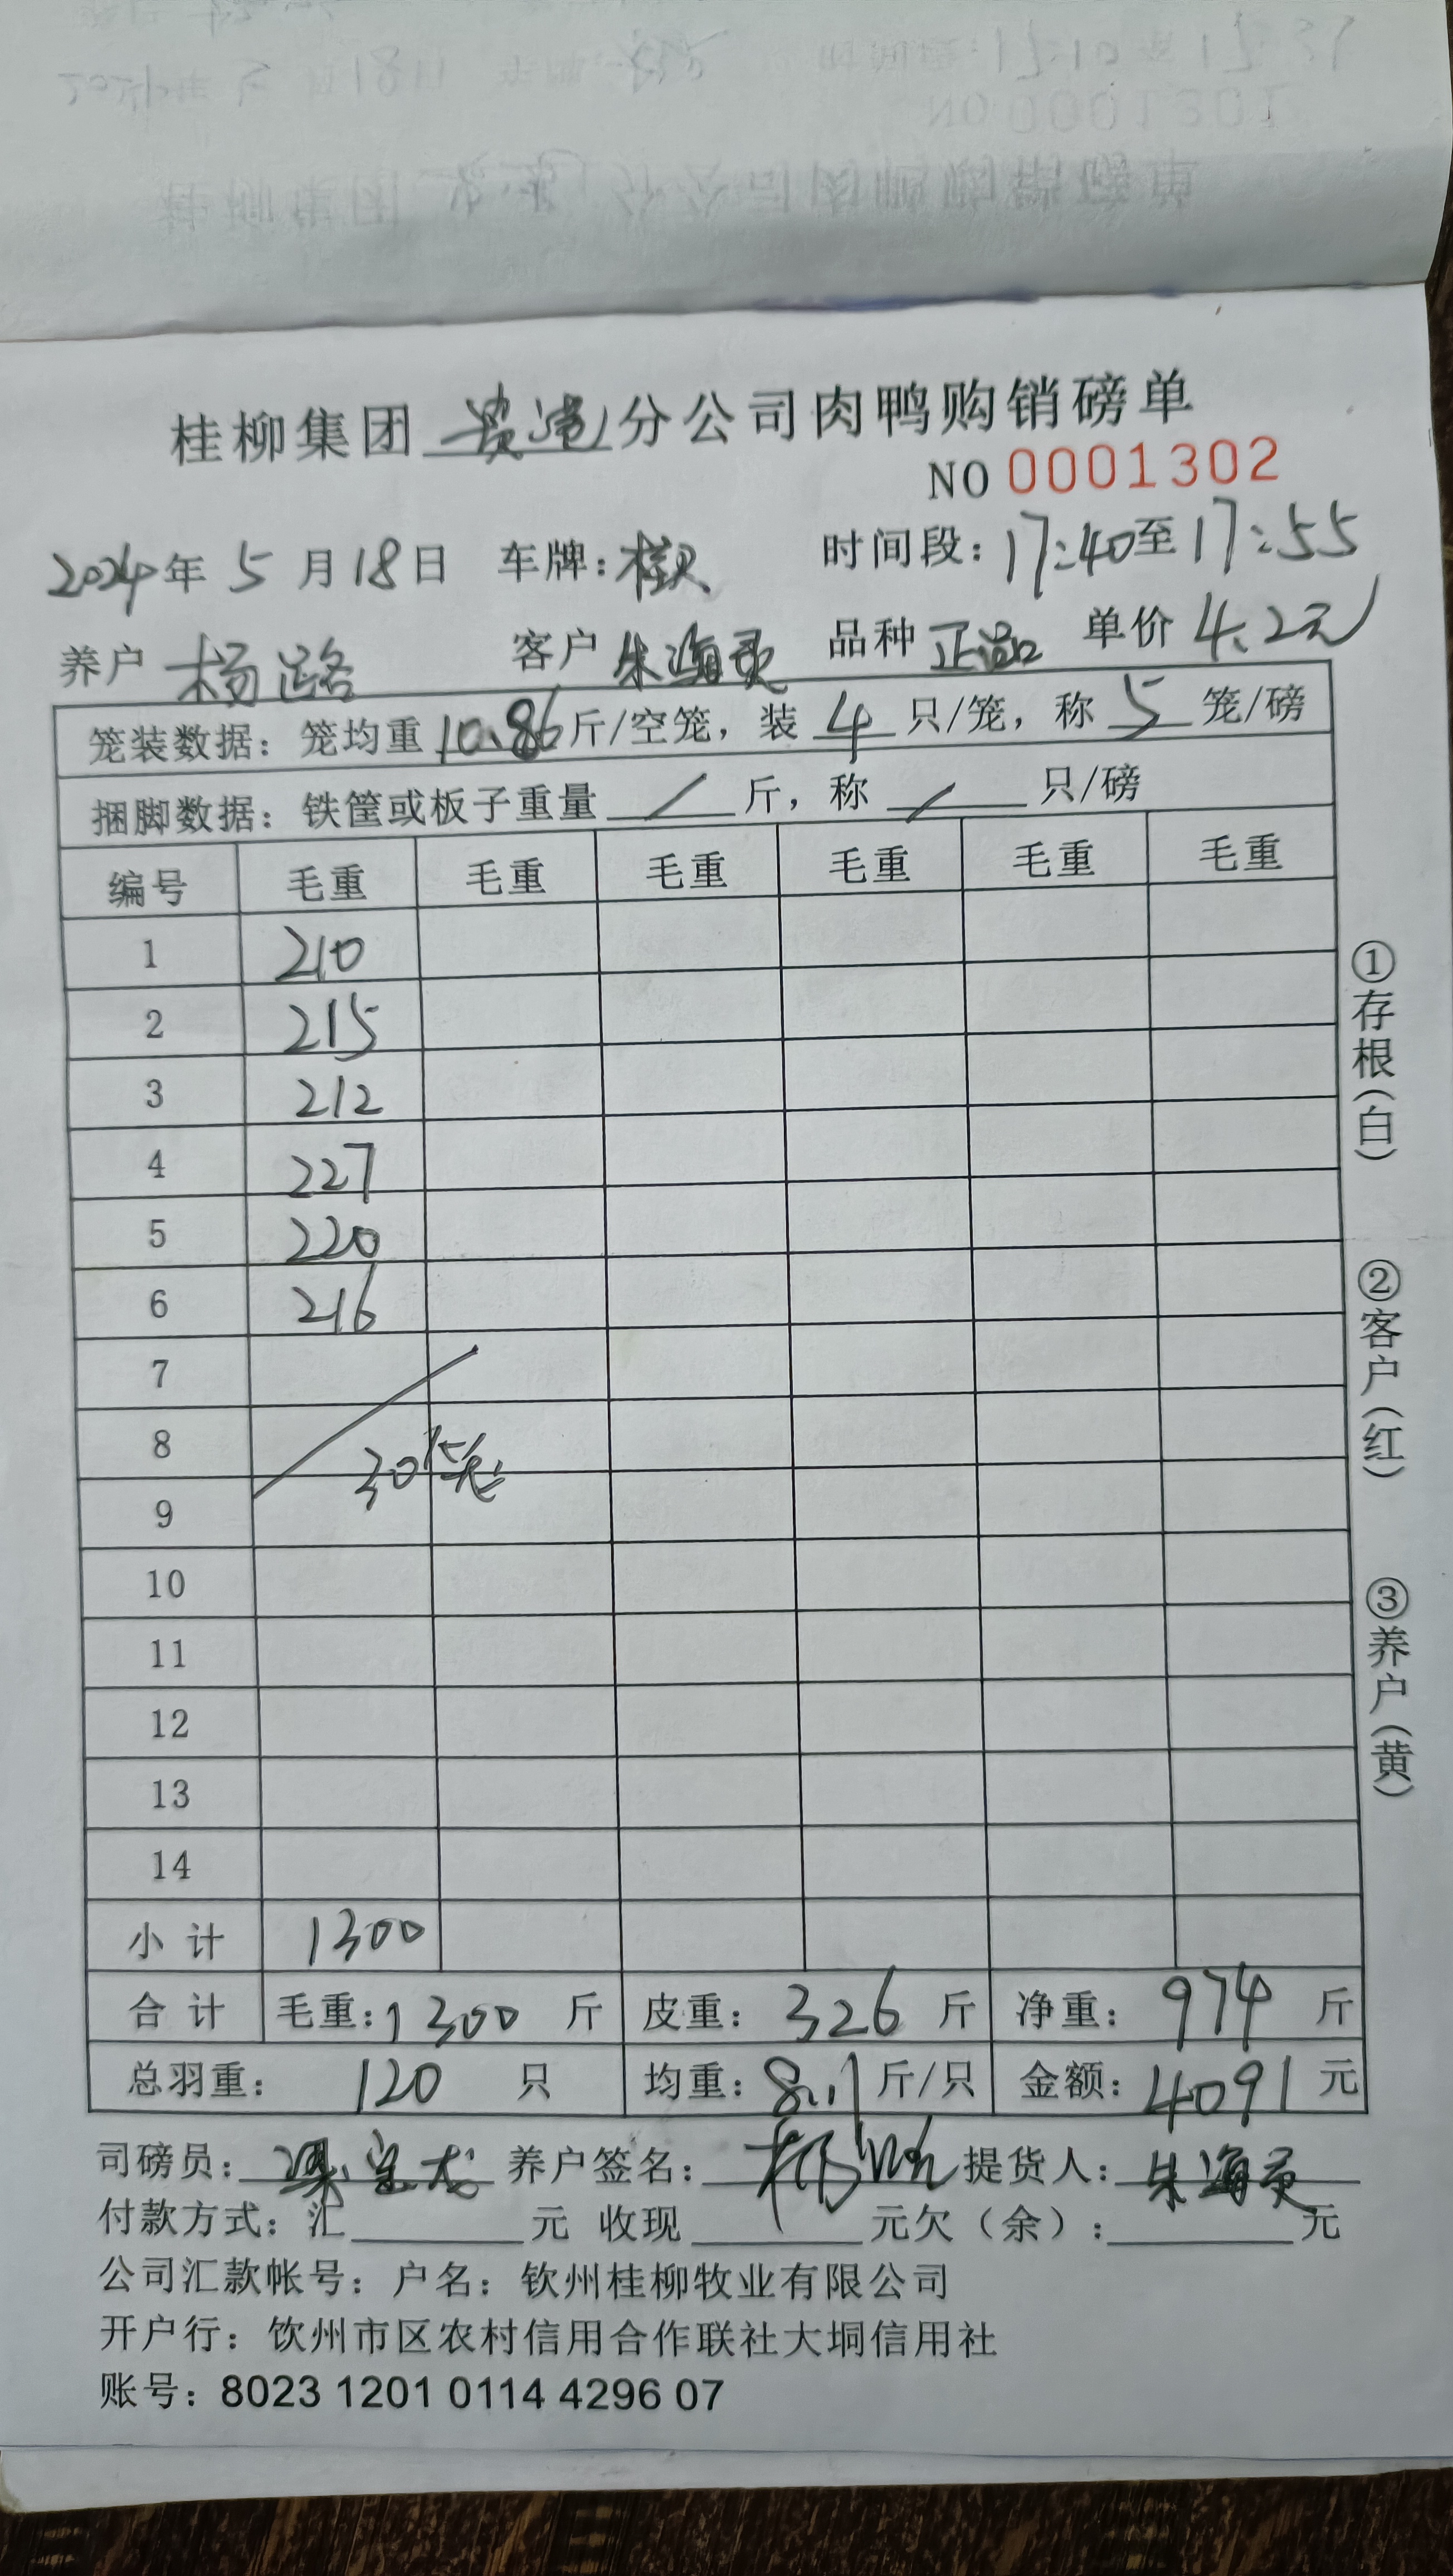 桂柳集团 贵港 分公司肉鸭购销磅单
NO 0001302
2024年 5 月 18 日 车牌: 时间段: 17:40 至 17:55
养户 杨路 客户 朱海 品种 正品 单价 4.2元
笼装数据: 笼均重 10.86 斤/空笼, 装 4 只/笼, 称 5 笼/磅
捆脚数据: 铁筐或板子重量 / 斤, 称 / 只/磅
编号 毛重 毛重 毛重 毛重 毛重 毛重
1 210
2 215
3 212
4 227
5 220
6 216
7
8 30笼
9
10
11
12
13
14
小计 1300
合计 毛重: 1300 斤 皮重: 326 斤 净重: 974 斤
总羽重: 120 只 均重: 8.1 斤/只 金额: 4091 元
司磅员: 养户签名: 杨 提货人: 朱海
付款方式: 汇 元 收现 元欠(余): 元
公司汇款帐号: 户名: 钦州桂柳牧业有限公司
开户行: 钦州市区农村信用合作联社大垌信用社
账号: 8023 1201 0114 4296 07
①存根(白)
②客户(红)
③养户(黄)